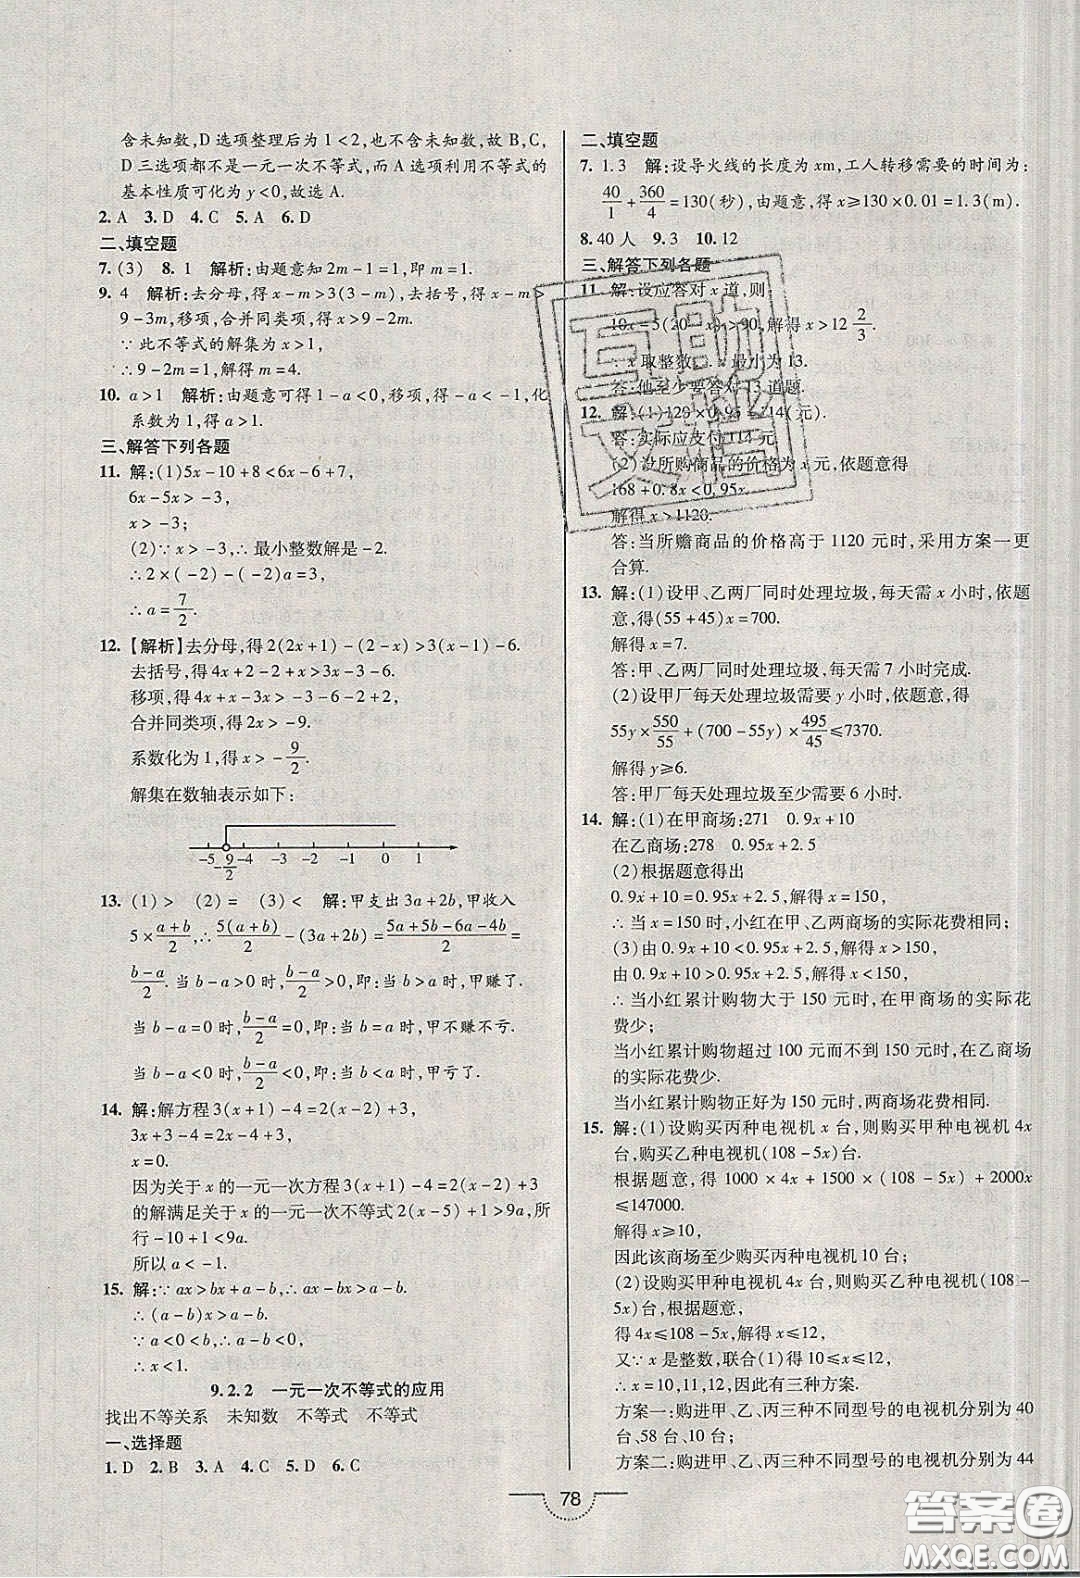 含未知数,D选项整理后为1<2,也不含未知数,故B,C,
D三选项都不是一元一次不等式,而A选项利用不等式的
基本性质可化为y<0,故选A.
2. A 3. D 4. C 5. A 6. D
二、填空题
7. (3) 8. 1 解析:由题意知2m-1=1,即m=1.
9. 4 解析:去分母,得x-m>3(3-m),去括号,得x-m>
9-3m,移项,合并同类项,得x>9-2m.
∵此不等式的解集为x>1,
∴9-2m=1,解得m=4.
10. a>1 解析:由题意可得1-a<0,移项,得-a<-1,化
系数为1,得a>1.
三、解答下列各题
11. 解:(1)5x-10+8<6x-6+7,
6x-5x>-3,
x>-3;
(2)∵x>-3,∴最小整数解是-2.
∴2×(-2)-(-2)a=3,
∴a=7/2.
12. 【解析】去分母,得2(2x+1)-(2-x)>3(x-1)-6.
去括号,得4x+2-2+x>3x-3-6.
移项,得4x+x-3x>-3-6-2+2.
合并同类项,得2x>-9.
系数化为1,得x>-9/2.
解集在数轴表示如下:
-5 -9/2 -4 -3 -2 -1 0 1
13. (1)> (2)= (3)< 解:甲支出3a+2b,甲收入
5×(a+b)/2,∴5(a+b)/2-(3a+2b)=(5a+5b-6a-4b)/2=
(b-a)/2.当b-a>0时,(b-a)/2>0,即:当b>a时,甲赚了.
当b-a=0时,(b-a)/2=0,即:当b=a时,甲不赚不亏.
当b-a<0时,(b-a)/2<0,即:当b<a时,甲亏了.
14. 解:解方程3(x+1)-4=2(x-2)+3,
3x+3-4=2x-4+3,
x=0.
因为关于x的一元一次方程3(x+1)-4=2(x-2)+3
的解满足关于x的一元一次不等式2(x-5)+1>9a,所
行-10+1>9a.
所以a<-1.
15. 解:∵ax>bx+a-b,∴ax-bx>a-b.
∴(a-b)x>a-b.
∵a<0<b,∴a-b<0,
∴x<1.
9.2.2 一元一次不等式的应用
找出不等关系 未知数 不等式 不等式
一、选择题
1. D 2. B 3. A 4. C 5. D 6. C
二、填空题
7. 1.3 解:设导火线的长度为xm,工人转移需要的时间为:
40/1+360/4=130(秒),由题意,得x≥130×0.01=1.3(m).
8. 40人 9. 3 10. 12
三、解答下列各题
11. 解:设应答对x道,则
10x-5(20-x)>90,解得x>12 2/3.
∵x取整数,∴x最小为13.
答:他至少要答对13道题.
12. 解:(1)120×0.95=114(元).
答:实际应支付114元.
(2)设所购商品的价格为x元,依题意得
168+0.8x<0.95x.
解得x>1120.
答:当所赡商品的价格高于1120元时,采用方案一更
合算.
13. 解:(1)设甲、乙两厂同时处理垃圾,每天需x小时,依题
意,得(55+45)x=700.
解得x=7.
答:甲、乙两厂同时处理垃圾,每天需7小时完成.
(2)设甲厂每天处理垃圾需要y小时,依题意,得
55y×550/55+(700-55y)×495/45≤7370.
解得y≥6.
答:甲厂每天处理垃圾至少需要6小时.
14. 解:(1)在甲商场:271 0.9x+10
在乙商场:278 0.95x+2.5
(2)根据题意得出
0.9x+10=0.95x+2.5,解得x=150,
∴当x=150时,小红在甲、乙两商场的实际花费相同;
(3)由0.9x+10<0.95x+2.5,解得x>150,
由0.9x+10>0.95x+2.5,解得x<150,
∴当小红累计购物大于150元时,在甲商场的实际花
费少;
当小红累计购物超过100元而不到150元时,在乙商场
的实际花费少.
当小红累计购物正好为150元时,两商场花费相同.
15. 解:(1)设购买丙种电视机x台,则购买甲种电视机4x
台,购买乙种电视机(108-5x)台,
根据题意,得1000×4x+1500×(108-5x)+2000x
≤147000.
解得x≥10,
因此该商场至少购买丙种电视机10台;
(2)设购买甲种电视机4x台,则购买乙种电视机(108-
5x)台,根据题意,得
得4x≤108-5x,解得x≤12,
又∵x是整数,联合(1)得10≤x≤12,
∴x=10,11,12,因此有三种方案.
方案一:购进甲、乙、丙三种不同型号的电视机分别为40
台,58台,10台;
方案二:购进甲、乙、丙三种不同型号的电视机分别为44
78
互助
文档
答案圈
MXQE.COM